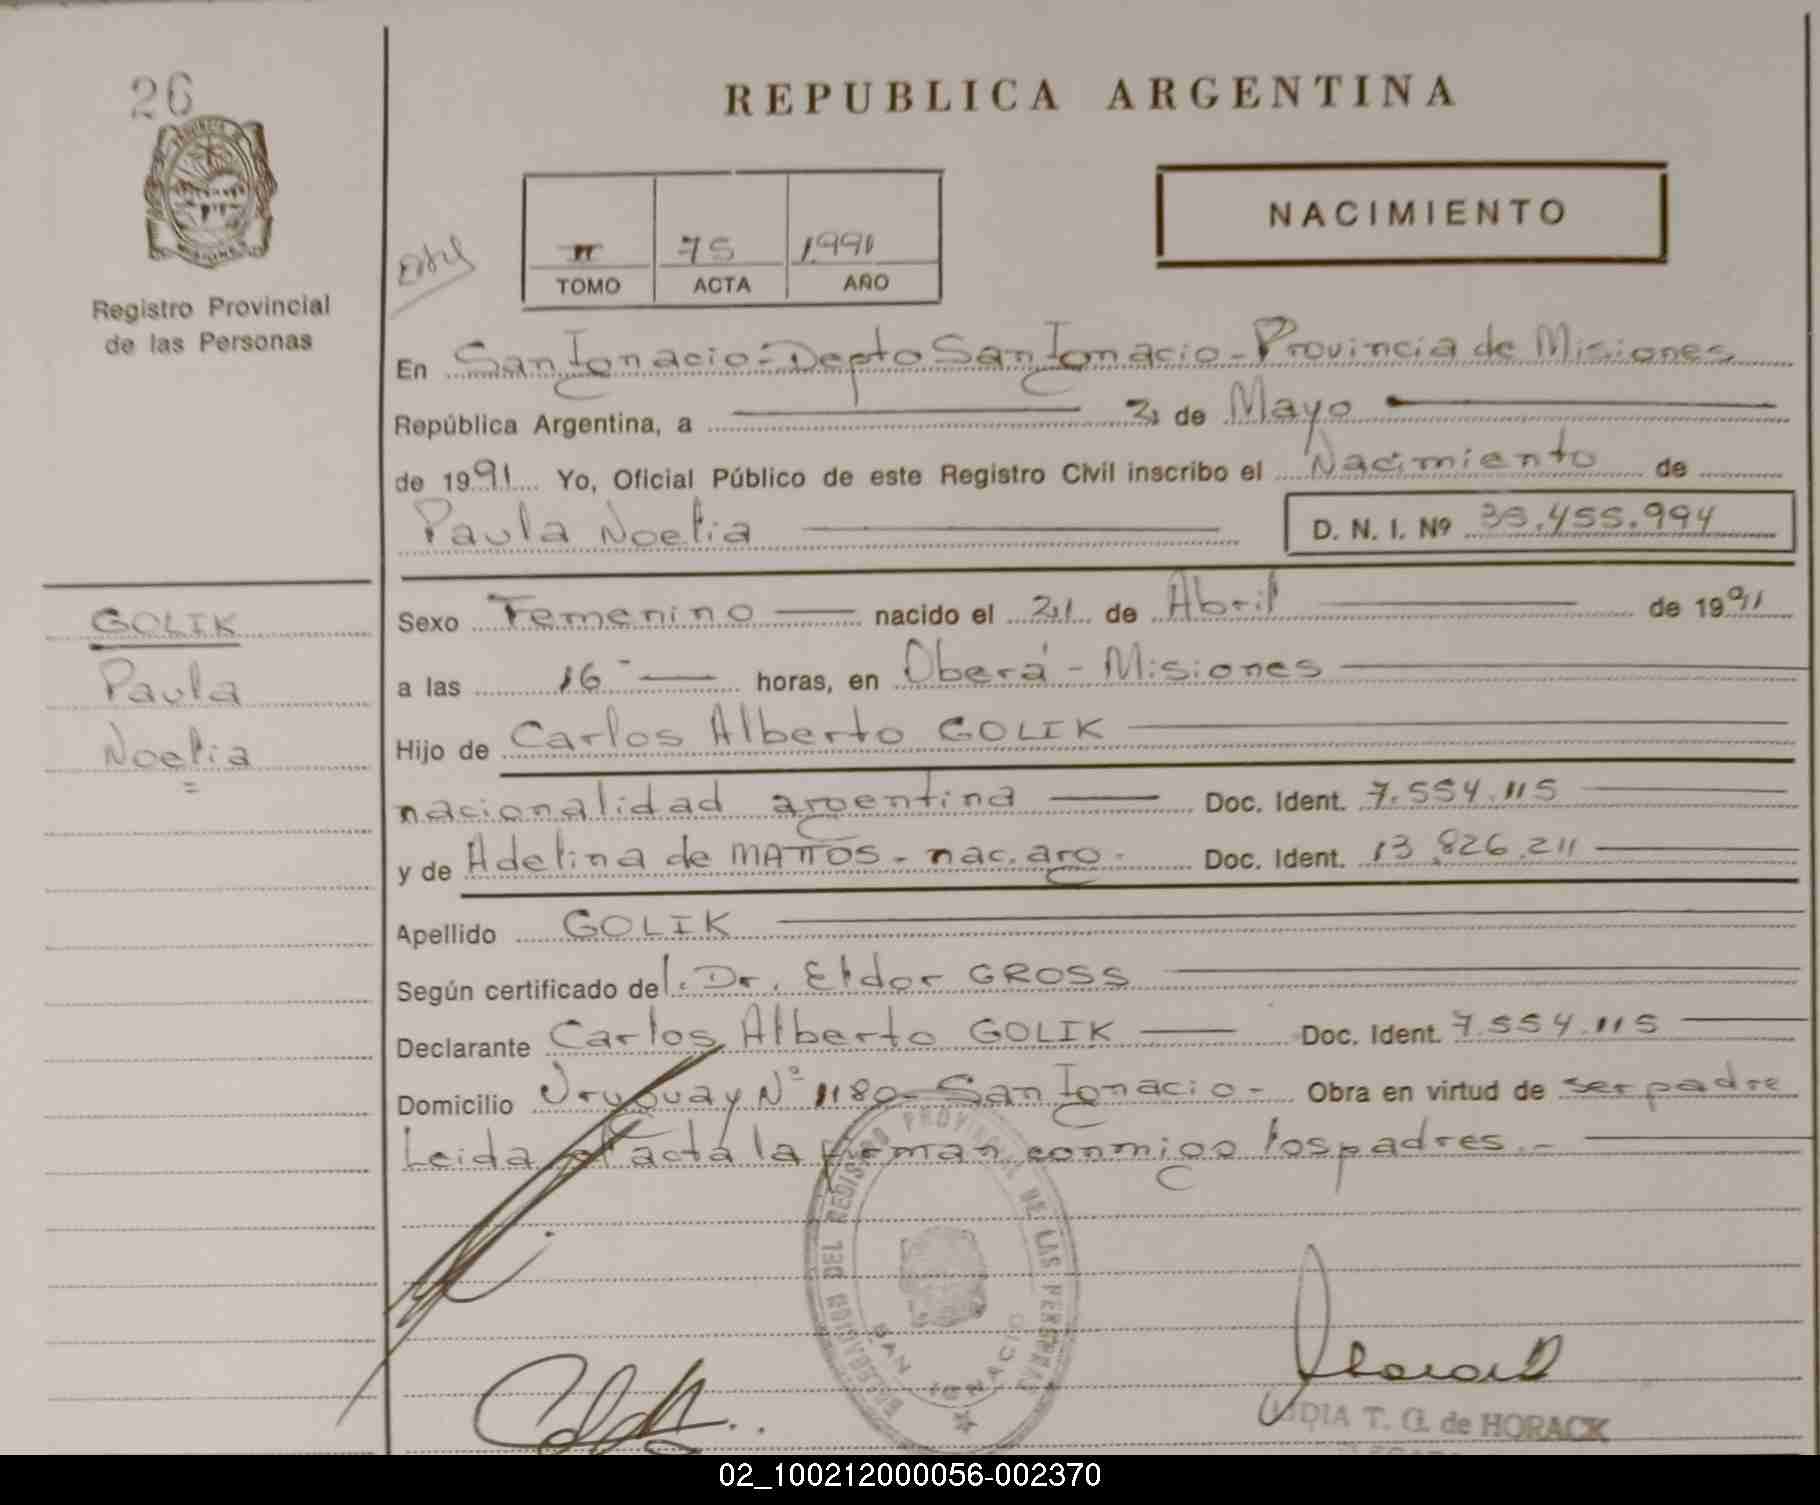 26
REPUBLICA ARGENTINA
NACIMIENTO
II 75 1991
TOMO ACTA AÑO
Registro Provincial
de las Personas
En San Ignacio - Depto San Ignacio - Provincia de Misiones
República Argentina, a 21 de Mayo
de 1991 Yo, Oficial Público de este Registro Civil inscribo el Nacimiento de
Paula Noelia D. N. I. Nº 35.455.994
GOLIK
Paula
Noelia
Sexo Femenino nacido el 21 de Abril de 1991
a las 16 horas, en Oberá - Misiones
Hijo de Carlos Alberto GOLIK
nacionalidad argentina Doc. Ident. 7.554.115
y de Adelina de MATTOS - nac. arg. Doc. Ident. 13.826.211
Apellido GOLIK
Según certificado del Dr. Eldor GROSS
Declarante Carlos Alberto GOLIK Doc. Ident. 7.554.115
Domicilio Uruguay Nº 1180 - San Ignacio - Obra en virtud de ser padre
Leida el acta la firman conmigo los padres.-
DELEGACION DEL REGISTRO PROVINCIAL DE LAS PERSONAS
SAN IGNACIO
LIDIA T. G. de HORACK
02_100212000056-002370